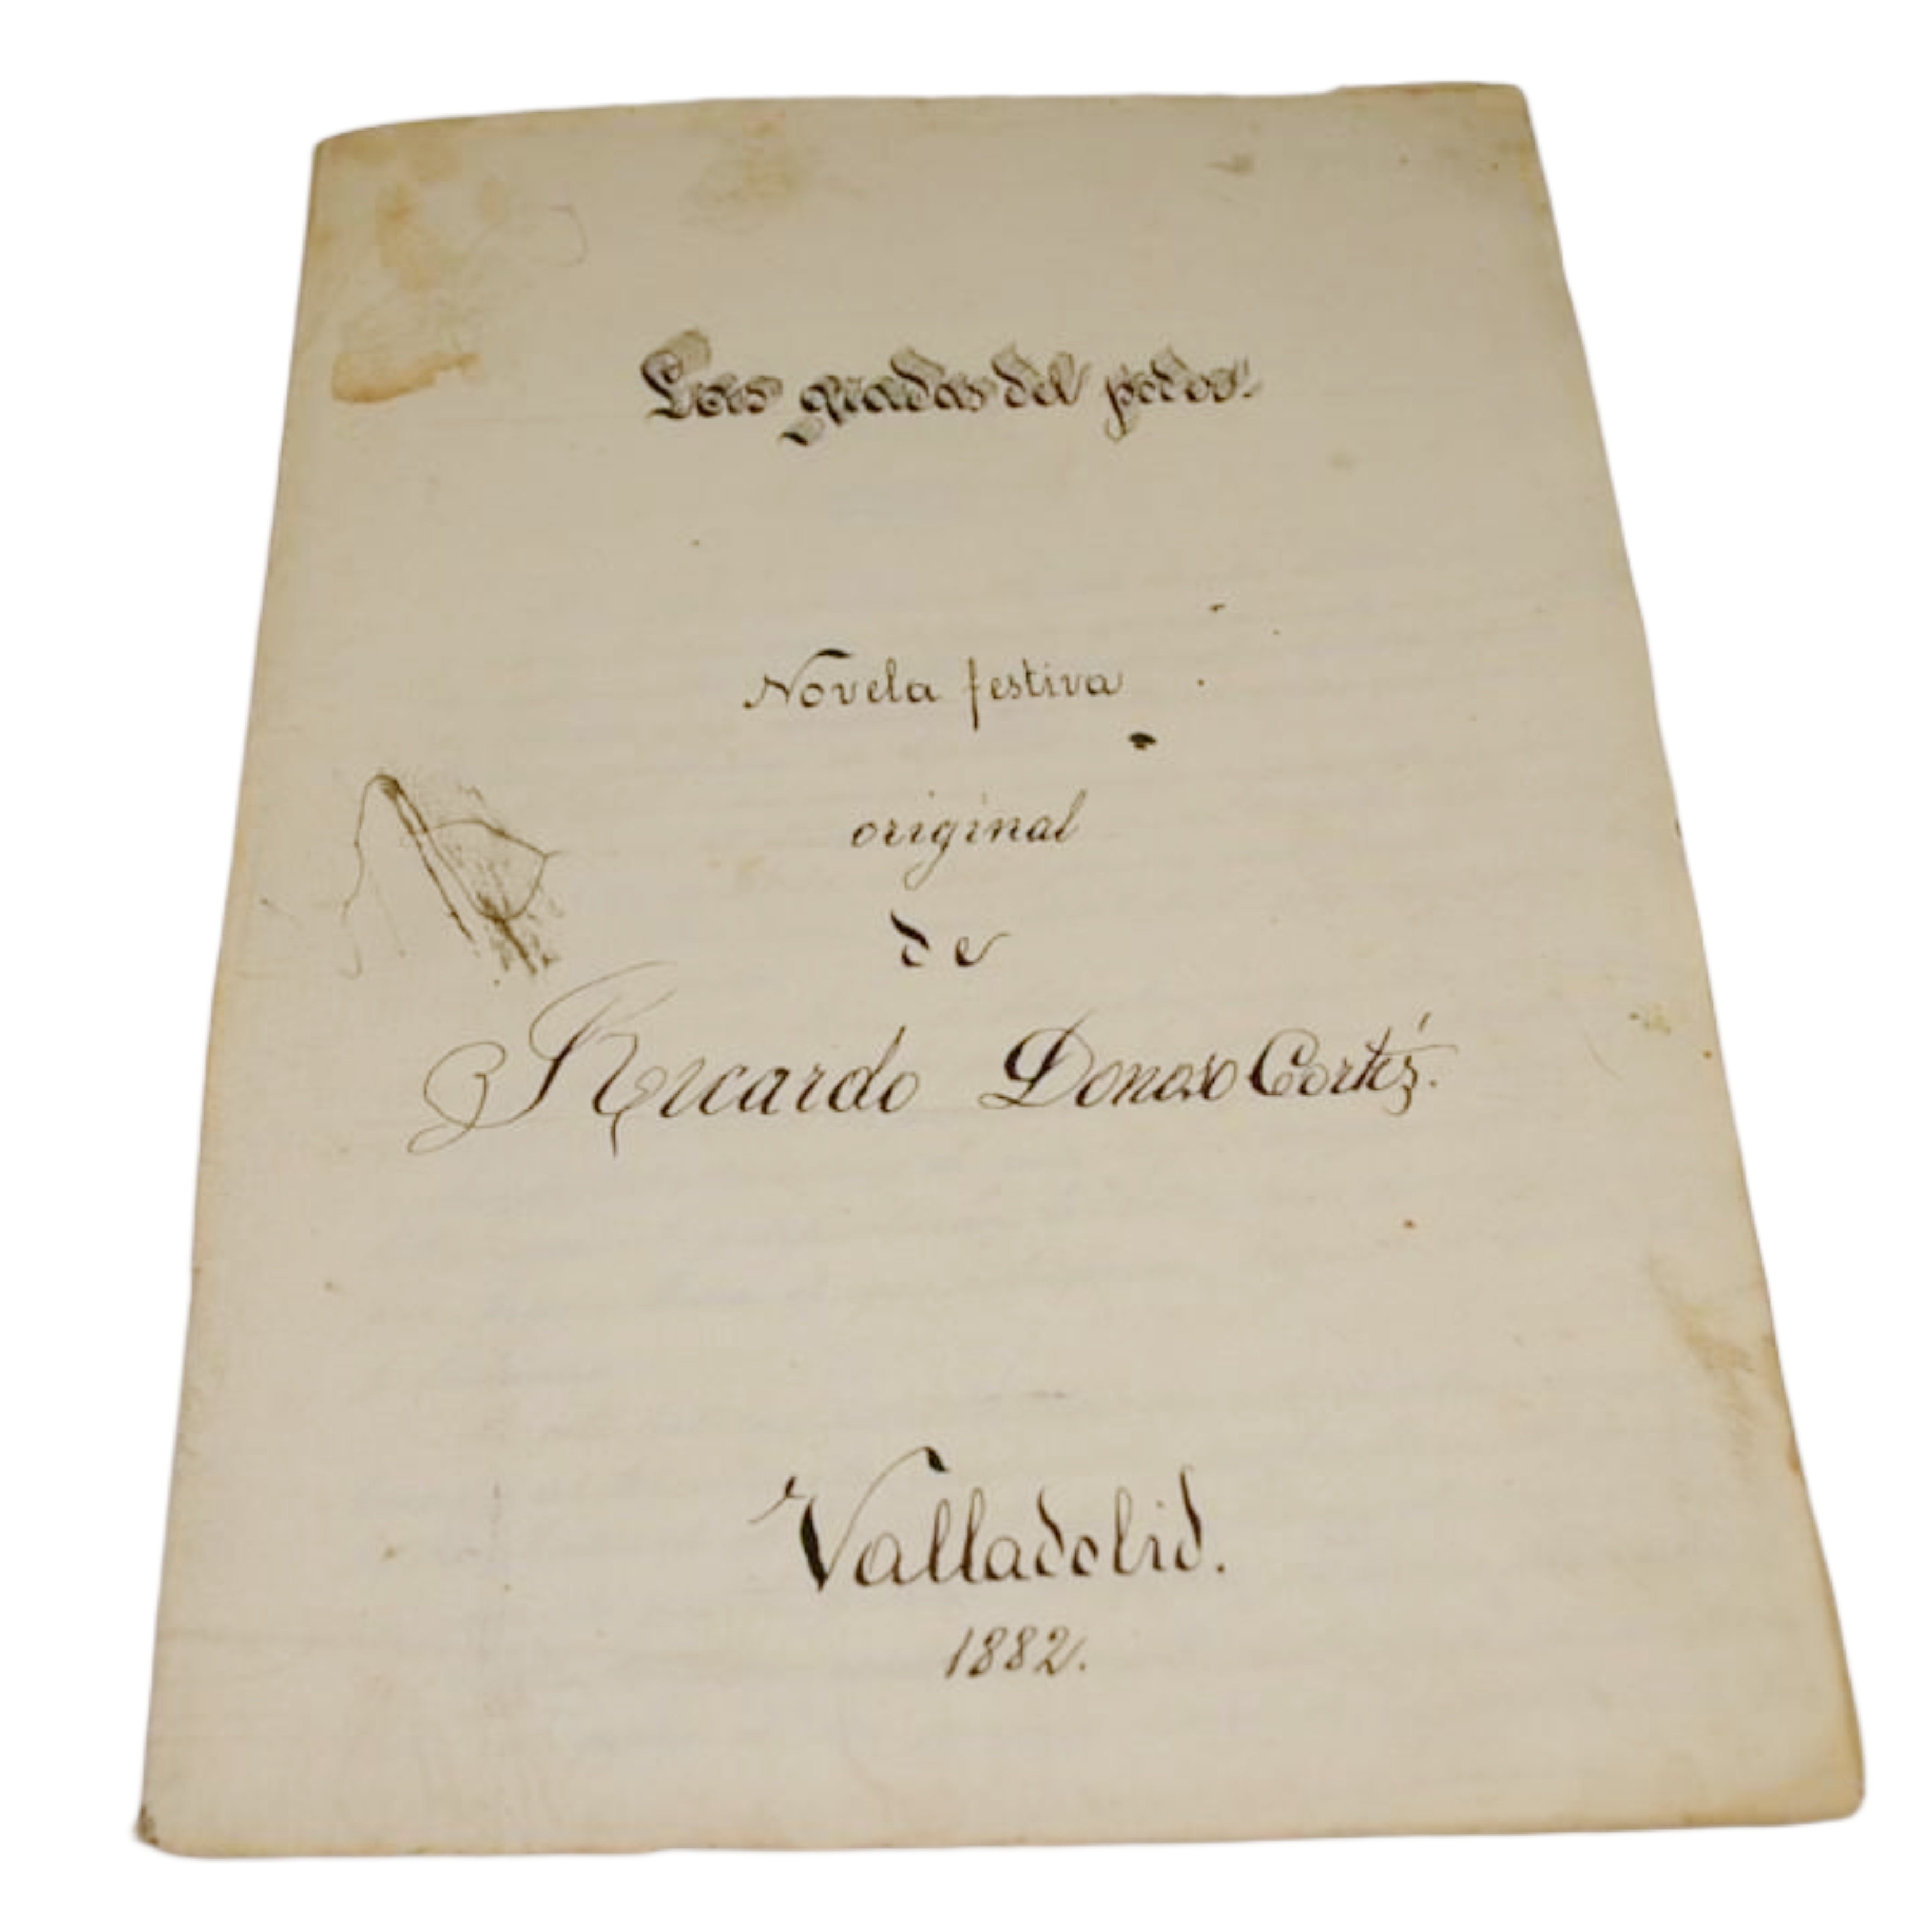 Las gradas del poder.
Novela festiva
original
de
Ricardo Donoso Cortés.
Valladolid.
1882.